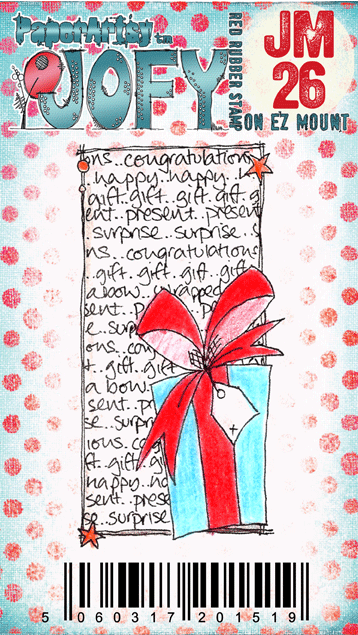 PaperArtsy™
JOFY
RED RUBBER STAMP
JM
26
ON EZ MOUNT
ns..congratulation
.happy..happy..
gift..gift..gift..gift..g
ent..present..present
surprise..surprise..s
ns..congratulations
.gift..gift..gift..gift
a bow..wrapped
sent..pre
e..surp
ions..con
t..gift..gif
a bow..
sent..p
se..surpri
ious..cong
ft..gift..gi
happy..ha
sent..prese
e..surprise
5 060317 201519